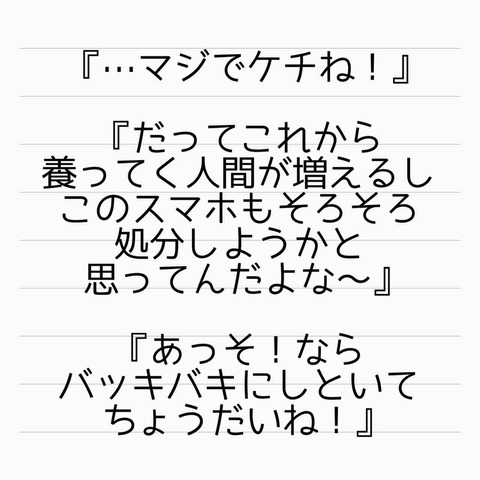 『…マジでケチね！』
『だってこれから
養ってく人間が増えるし
このスマホもそろそろ
処分しようかと
思ってんだよな〜』
『あっそ！なら
バッキバキにしといて
ちょうだいね！』